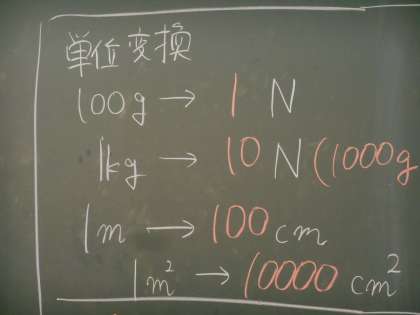 単位変換
100g → 1 N
1kg → 10 N (1000g
1m → 100 cm
1m² → 10000 cm²